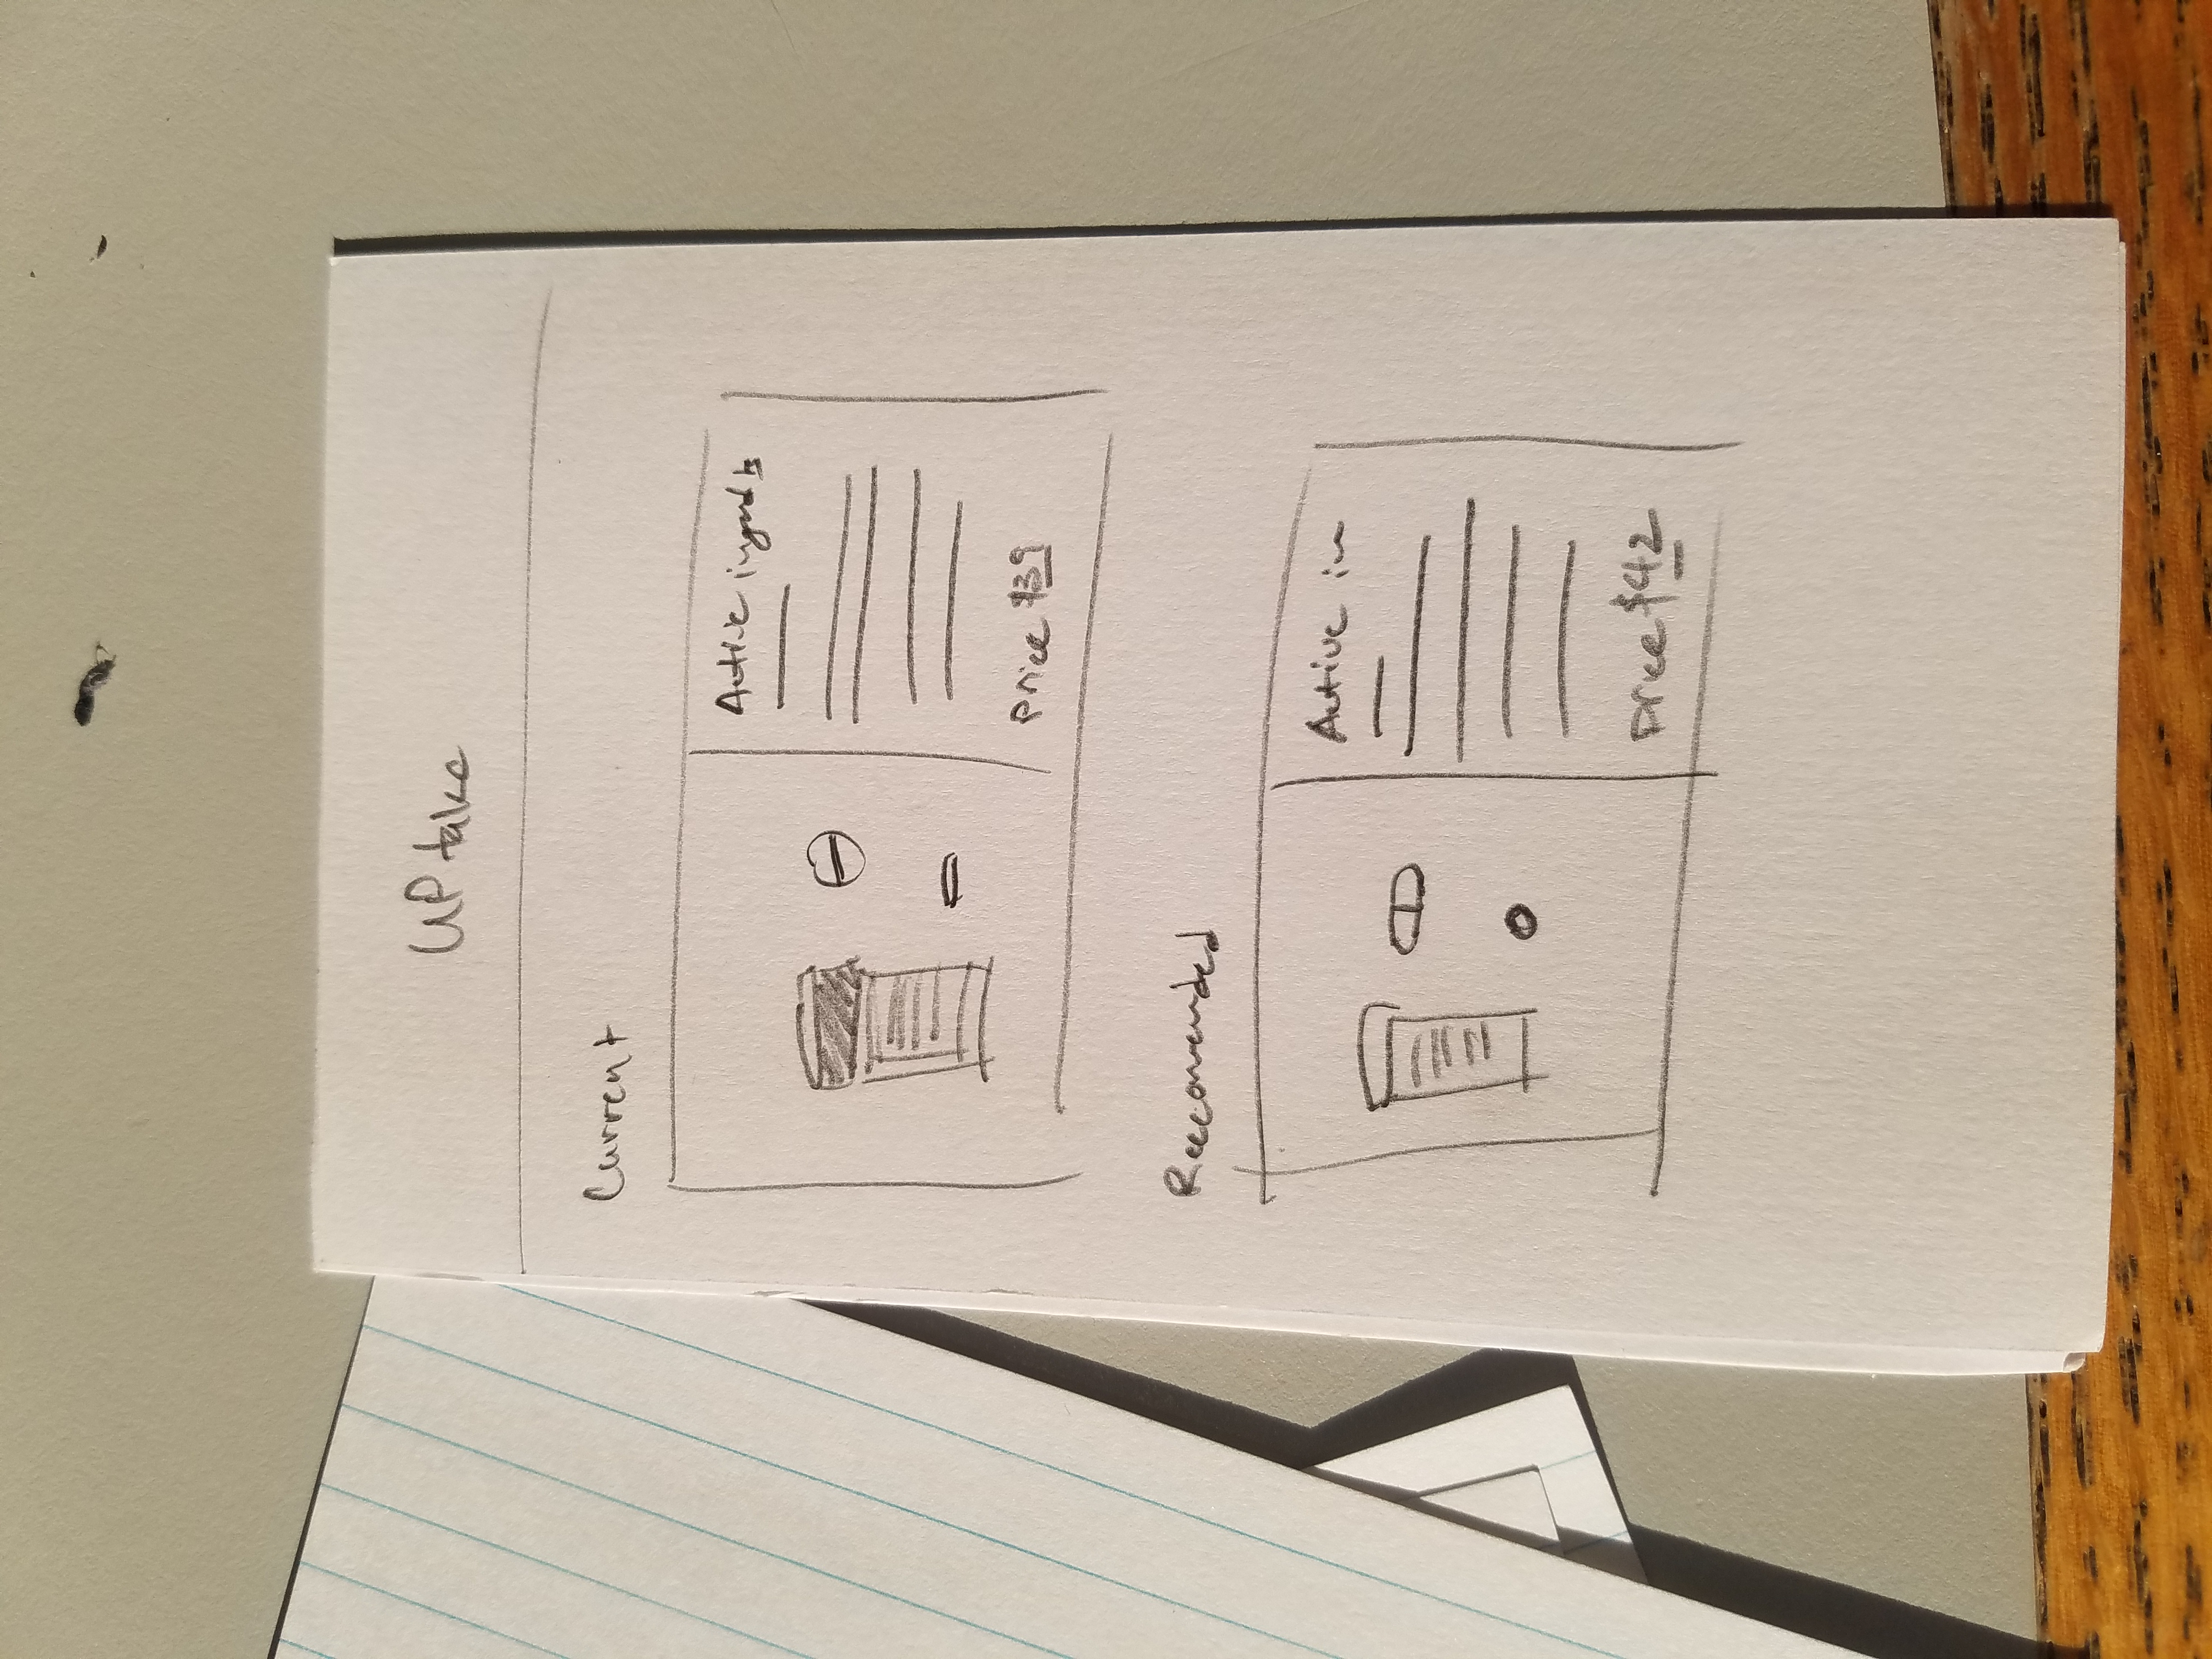 UPtake
Current
Active ingredts
Price $39
Reccomended
Active in
Price $42